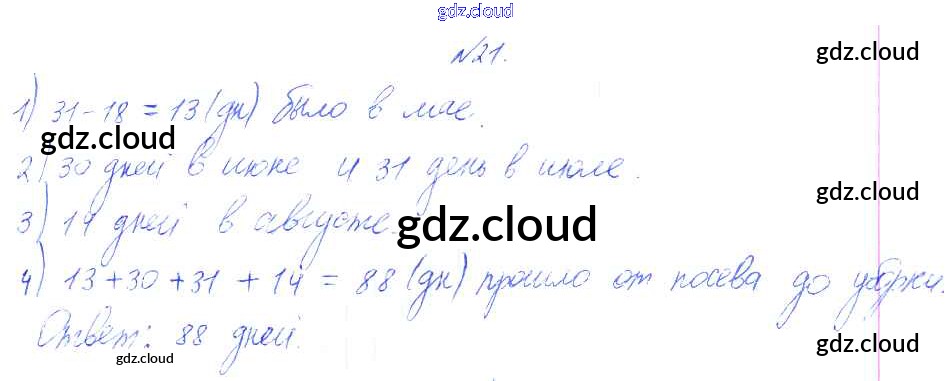 gdz.cloud
№21.
gdz.cloud
1) 31-18 = 13 (дн) было в мае.
gdz.cloud
2) 30 дней в июне и 31 день в июле.
gdz.cloud
3) 14 дней в августе.
gdz.cloud
4) 13+30+31+14 = 88 (дн) прошло от посева до уборки.
Ответ: 88 дней.
gdz.cloud
gdz.cloud